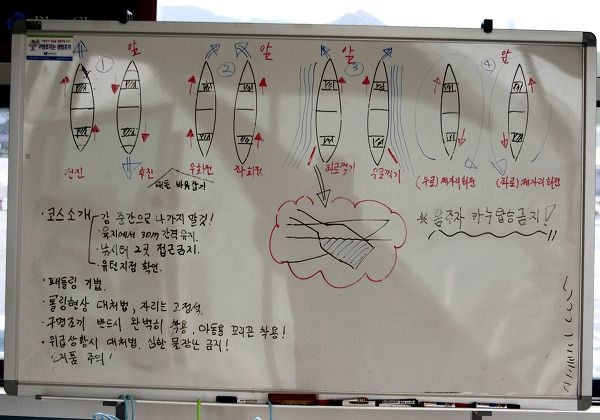 구명조끼는 생명조끼
앞 앞 앞 앞
① ② ③ ④
전진 후진 우회전 좌회전 좌로꺽기 우로꺽기 (우로) 제자리회전 (좌로) 제자리회전
패들 바로잡기
· 코스소개 - 강 중간으로 나가지 말것!
· 육지에서 30m 간격 유지.
· 낚시터 2곳 접근금지.
· 유턴지점 확인.
※ 음주자 카누탑승금지!
· 패들링 기법.
· 롤링현상 대처법, 자리는 고정석.
· 구명조끼 반드시 완벽히 착용, 아동용 끈 착용!
· 위급상황시 대처법. 심한 물장난 금지!
소지품 주의!